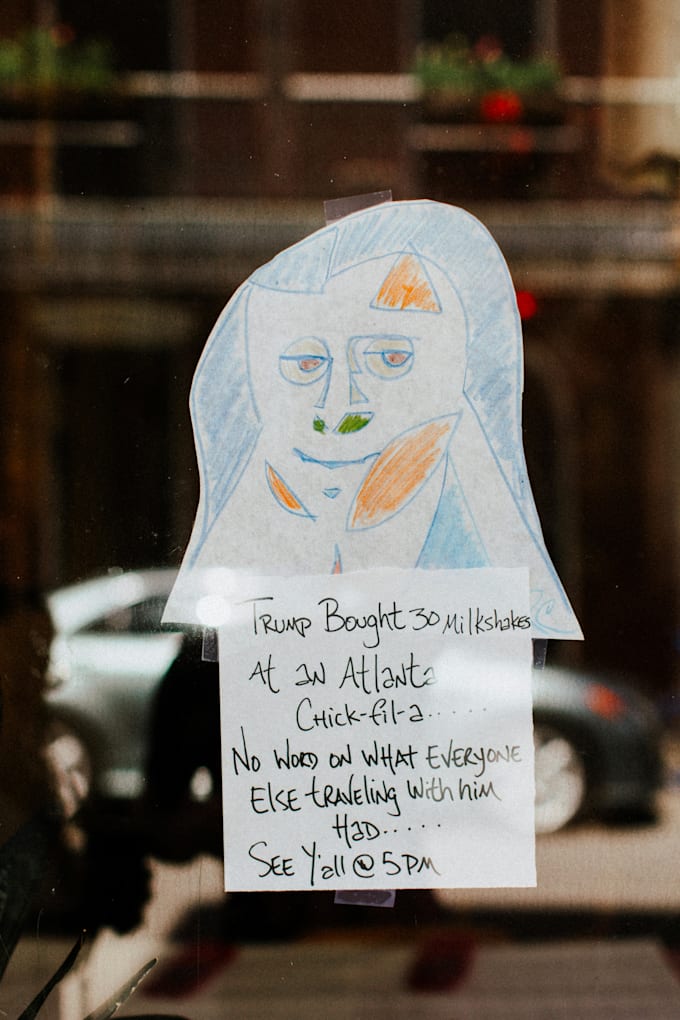 Trump Bought 30 Milkshakes
At an Atlanta
Chick-fil-a.....
No word on what everyone
Else traveling with him
Had.....
See Y'all @ 5PM